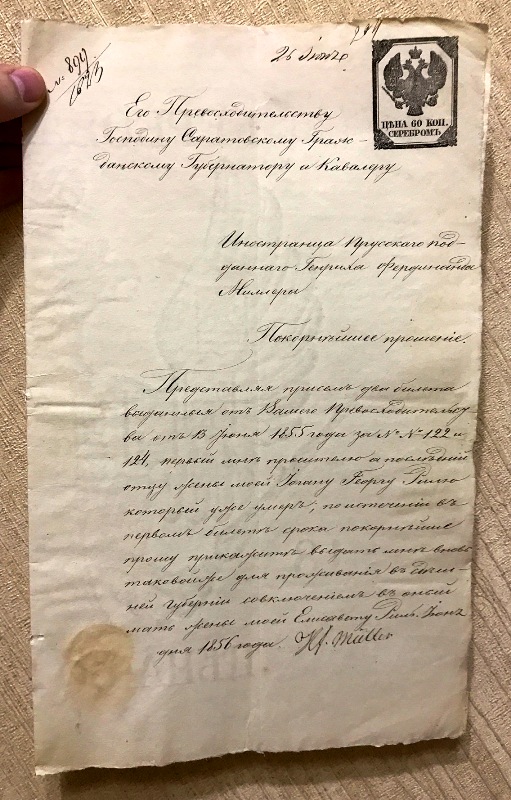 № 899
26 Июня
ЦѢНА 60 КОП.
СЕРЕБРОМЪ
Его Превосходительству
Господину Саратовскому Граж-
данскому Губернатору и Кавалеру
Иностранца Прусскаго под-
даннаго Генриха Фердинанда
Миллера
Покорнѣйшее прошеніе.
Представляя присемъ два билета
выданныя отъ Вашего Превосходительст-
ва отъ 13 Іюня 1855 года за № № 122 и
124, первый мнѣ просителю а послѣдній
отцу жены моей Іогану Георгу
который уже умеръ; по истеченіи въ
первомъ билетѣ срока покорнѣйше
прошу приказать выдать мнѣ вновь
таковойже для проживанія въ
ней Губерніи совключеніемъ въ оный
мать жены моей Елисавету Іюня
дня 1856 года. Hf. Müller